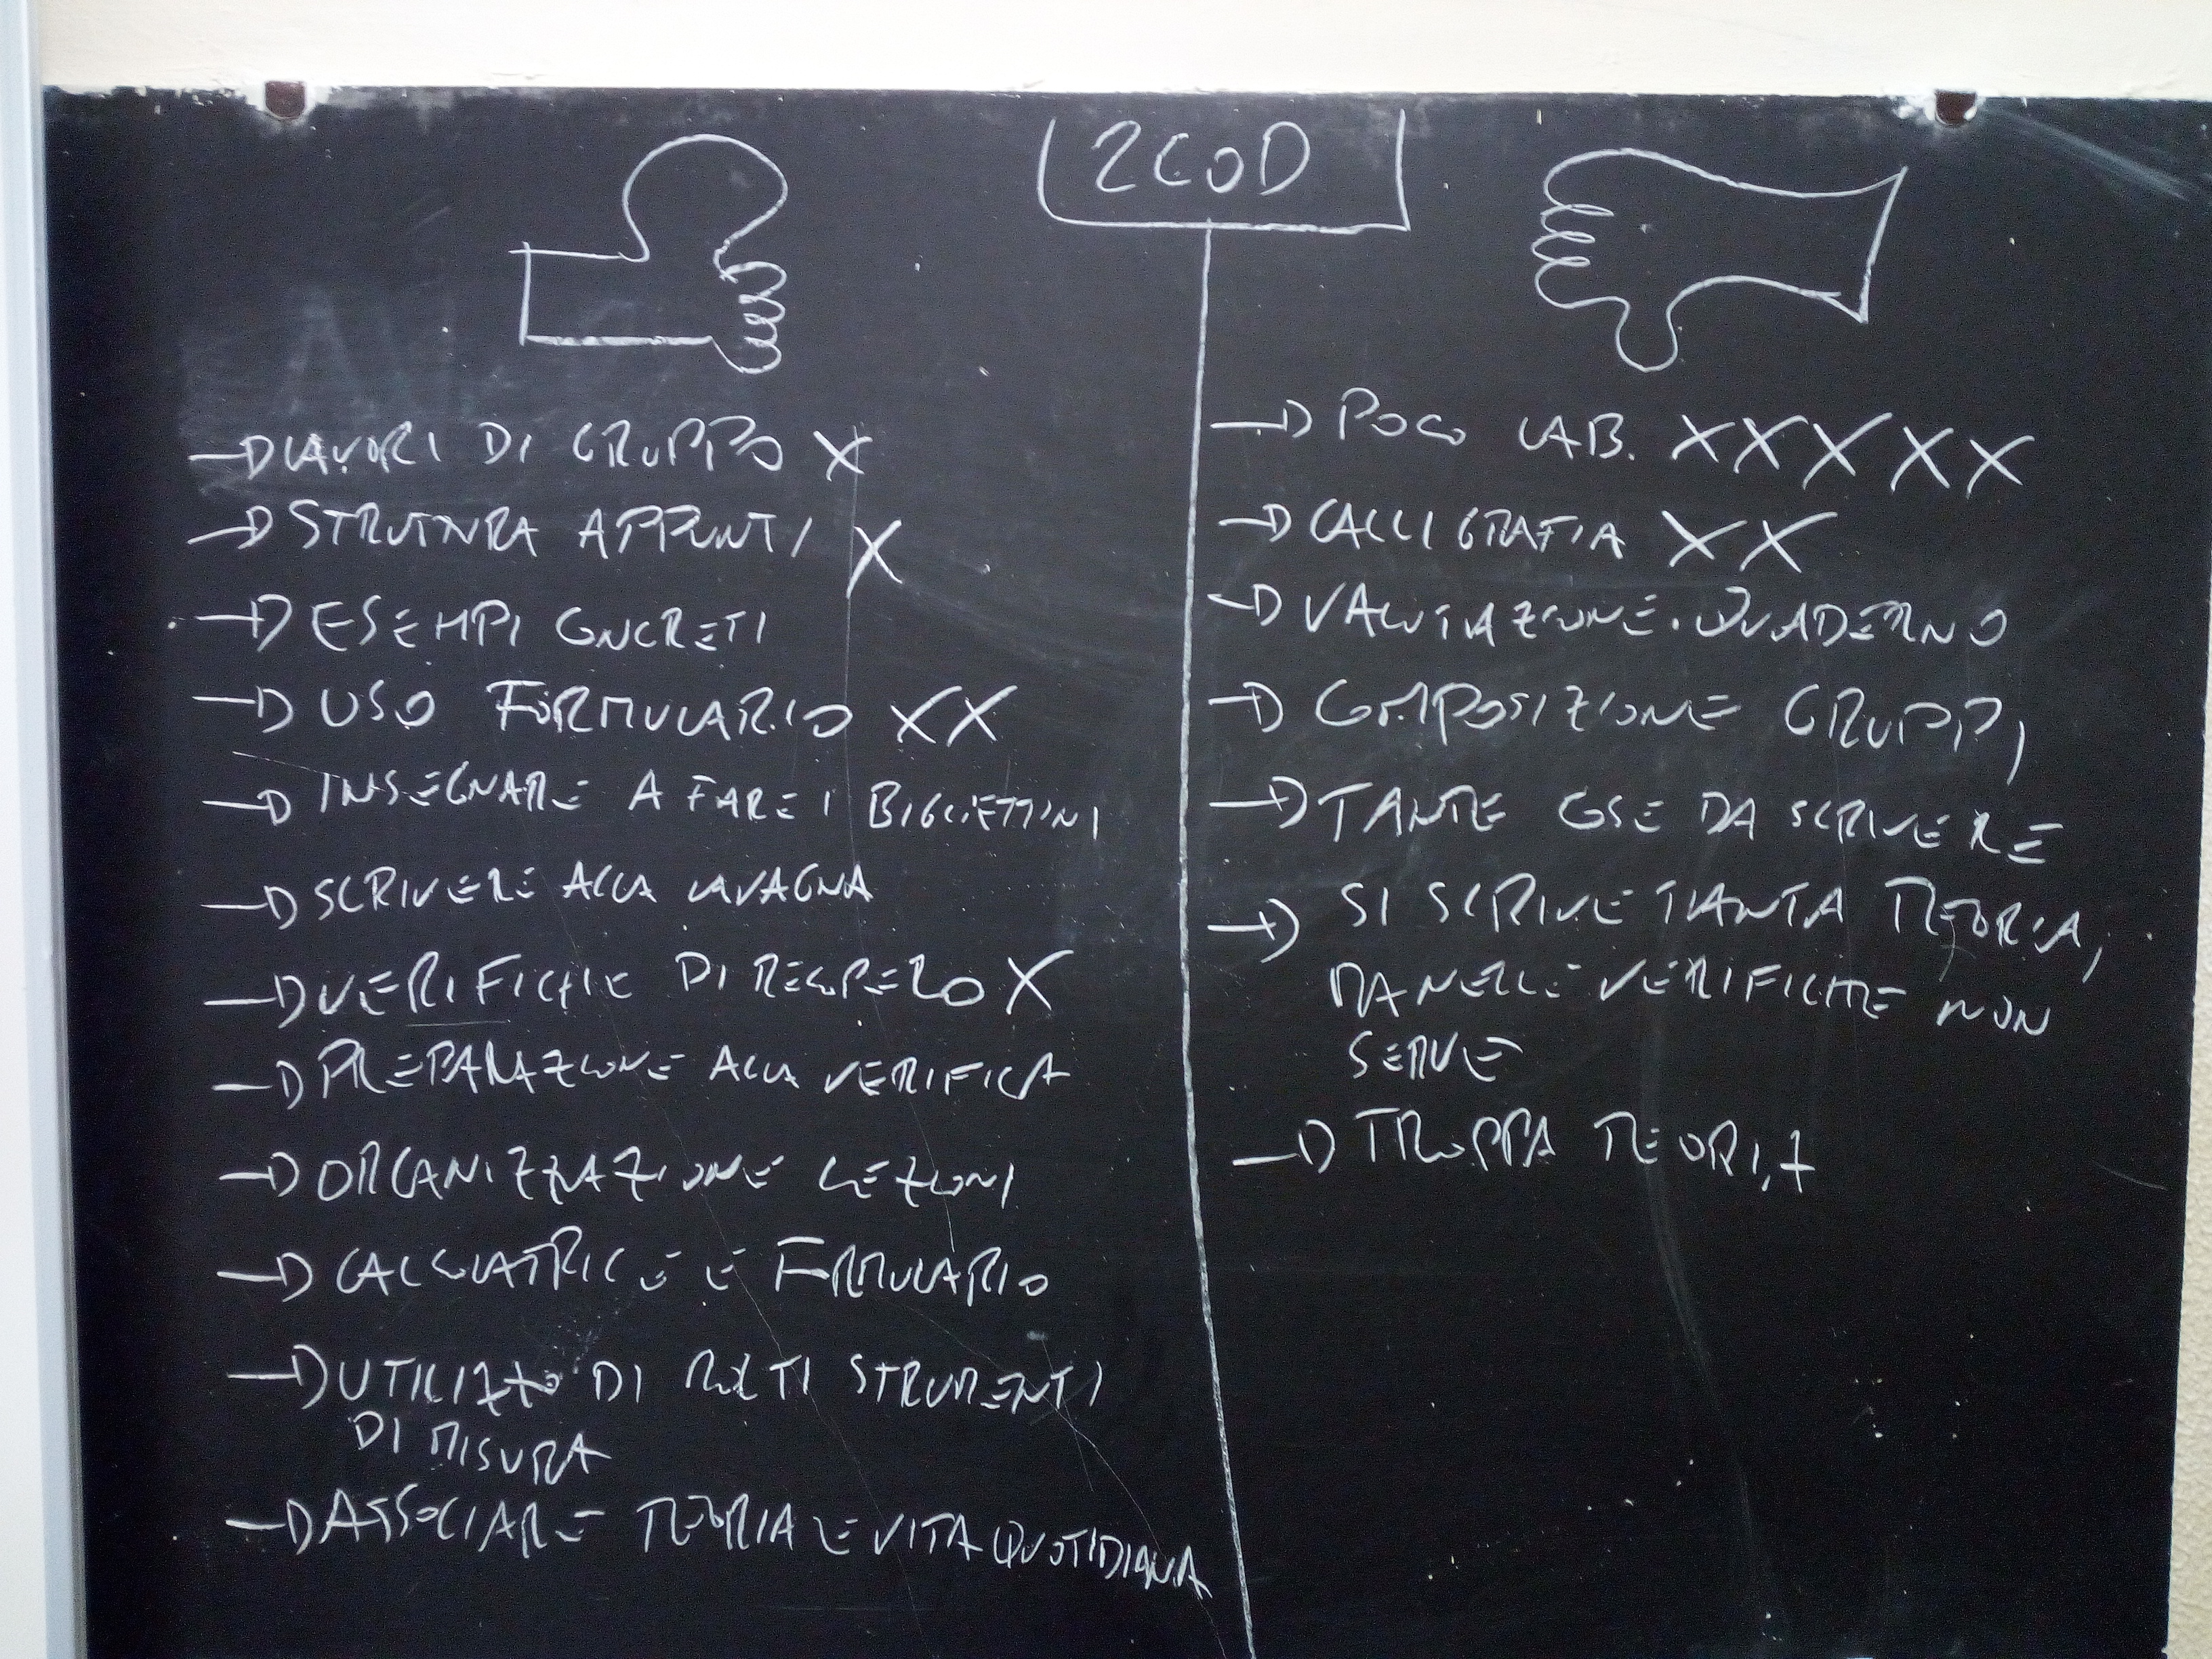 2COD
→ LAVORI DI GRUPPO X
→ STRUTTURA APPUNTI X
→ ESEMPI CONCRETI
→ USO FORMULARIO XX
→ INSEGNARE A FARE I BIGLIETTINI
→ SCRIVERE ALLA LAVAGNA
→ VERIFICHE DI RECUPERO X
→ PREPARAZIONE ALLA VERIFICA
→ ORGANIZZAZIONE LEZIONI
→ CALCOLATRICE E FORMULARIO
→ UTILIZZO DI MOLTI STRUMENTI
DI MISURA
→ ASSOCIARE TEORIA E VITA QUOTIDIANA
→ POCO LAB. XXXXX
→ CALLIGRAFIA XX
→ VALUTAZIONE QUADERNO
→ COMPOSIZIONE GRUPPI
→ TANTE COSE DA SCRIVERE
→ SI SCRIVE TANTA TEORIA,
MA NELLE VERIFICHE NON
SERVE
→ TROPPA TEORIA